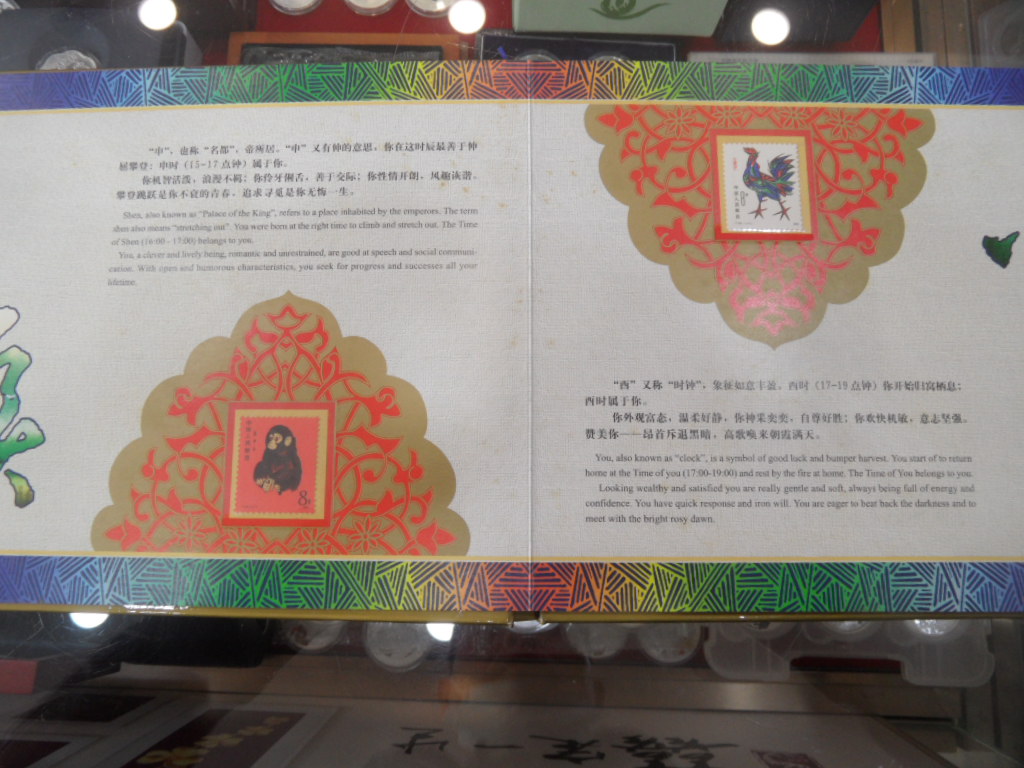 “申”，也称“名都”，帝所居。“申”又有伸的意思，你在这时辰最善于伸
屈攀登；申时（15-17点钟）属于你。
你机智活泼，浪漫不羁；你伶牙俐舌，善于交际；你性情开朗，风趣诙谐。
攀登跳跃是你不衰的青春，追求寻觅是你无悔一生。
Shen, also known as “Palace of the King”, refers to a place inhabited by the emperors. The term
shen also means “stretching out”. You were born at the right time to climb and stretch out. The Time
of Shen (16:00 - 17:00) belongs to you.
You, a clever and lively being, romantic and unrestrained, are good at speech and social communi-
cation. With open and humorous characteristics, you seek for progress and successes all your
lifetime.
8
“酉”又称“时钟”，象征如意丰盈，酉时（17-19点钟）你开始归窝栖息；
酉时属于你。
你外观富态，温柔好静，你神采奕奕，自尊好胜；你欢快机敏，意志坚强。
赞美你——昂首斥退黑暗，高歌唤来朝霞满天。
You, also known as “clock”, is a symbol of good luck and bumper harvest. You start of to return
home at the Time of you (17:00-19:00) and rest by the fire at home. The Time of You belongs to you.
Looking wealthy and satisfied you are really gentle and soft, always being full of energy and
confidence. You have quick response and iron will. You are eager to beat back the darkness and to
meet with the bright rosy dawn.